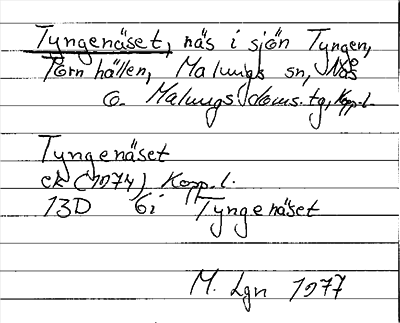 Tyngenäset, näs i sjön Tyngen,
Törnhällen, Malungs sn, Nås
o. Malungs doms. tg, Kopp.l.
Tyngenäset
ek (1974) Kopp. l.
13D 6i Tyngenäset
M. Lgn 1977